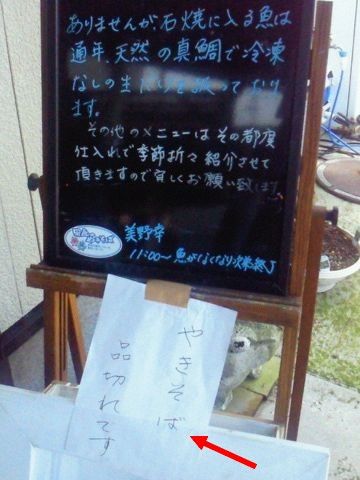 ありませんが、石焼に入る魚は
通年、天然の真鯛で冷凍
なしの生だけを扱っております。
その他のメニューはその都度
仕入れで季節折々紹介させて
頂きますので宜しくお願い致します
美野幸
11:00〜魚がなくなり次第終了
やきそば
品切れです